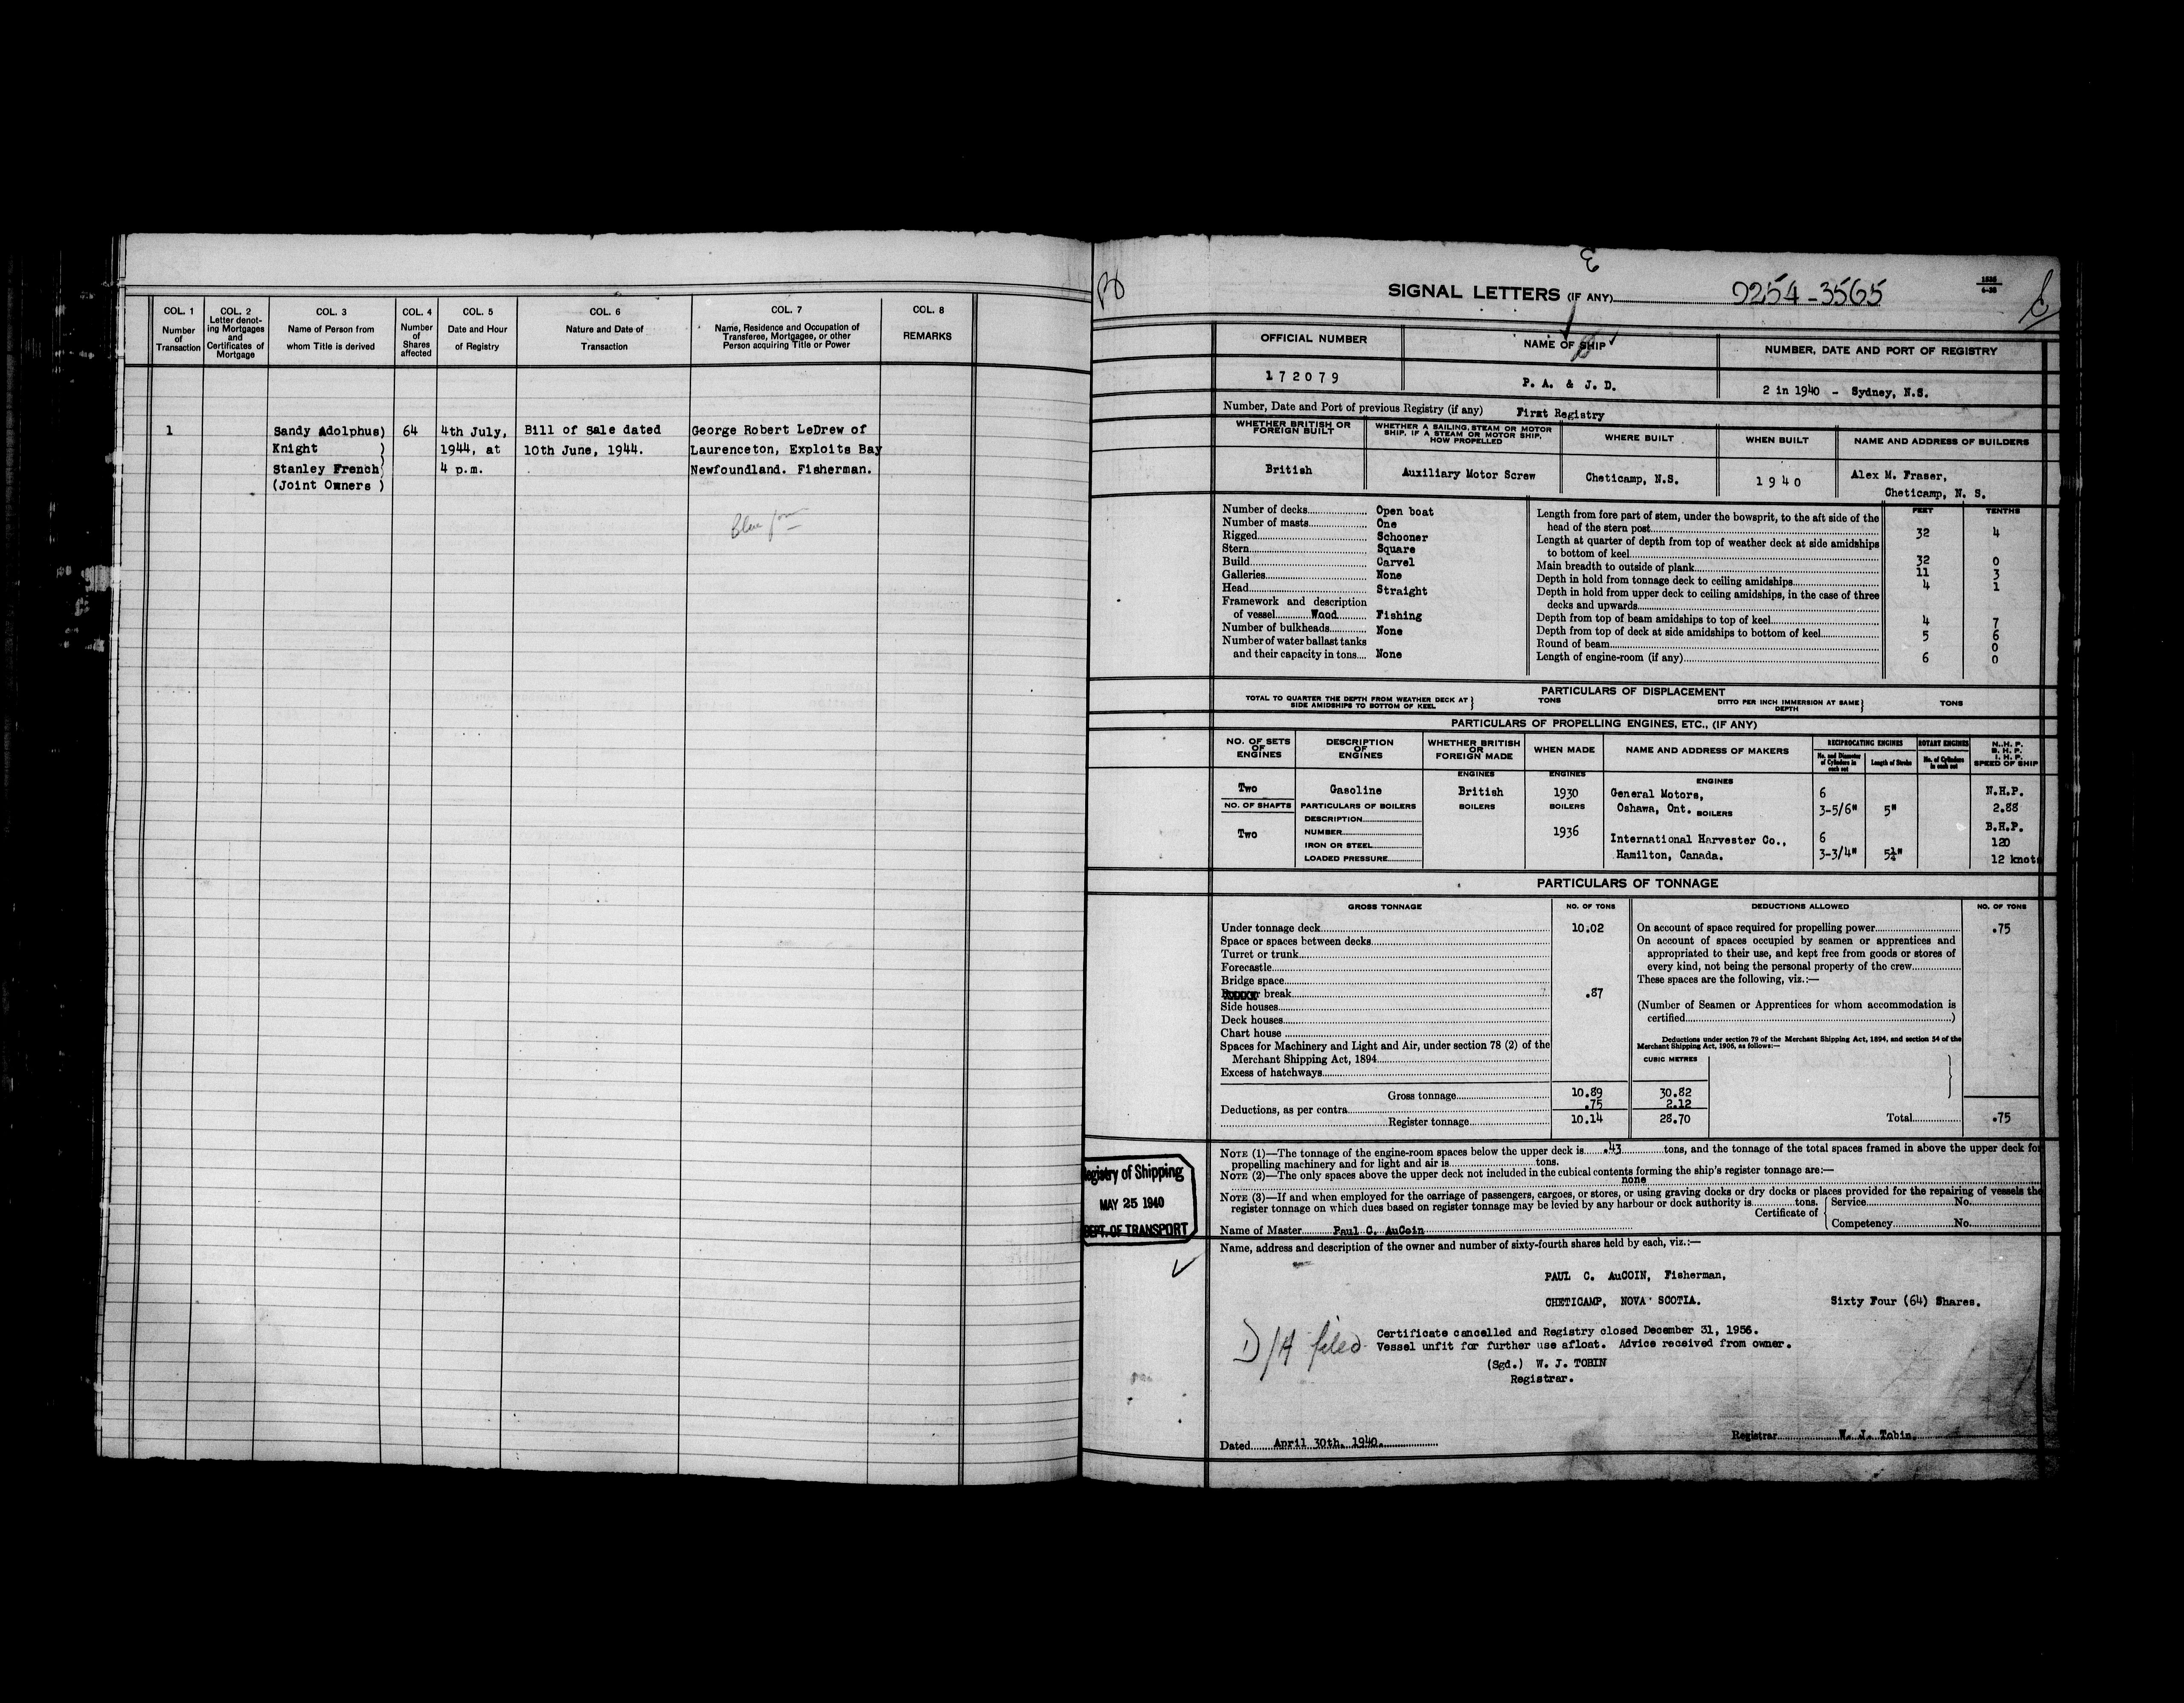 COL. 1
Number
of
Transaction
COL. 2
Letter denot-
ing Mortgages
and
Certificates of
Mortgage
COL. 3
Name of Person from
whom Title is derived
COL. 4
Number
of
Shares
affected
COL. 5
Date and Hour
of Registry
COL. 6
Nature and Date of
Transaction
COL. 7
Name, Residence and Occupation of
Transferee, Mortgagee, or other
Person acquiring Title or Power
COL. 8
REMARKS
1 Sandy Adolphus) 64 4th July, Bill of Sale dated George Robert LeDrew of
Knight ) 1944, at 10th June, 1944. Laurenceton, Exploits Bay
Stanley French) 4 p.m. Newfoundland. Fisherman.
(Joint Owners )
SIGNAL LETTERS (IF ANY) 0254-3565
OFFICIAL NUMBER NAME OF SHIP NUMBER, DATE AND PORT OF REGISTRY
172079 P. A. & J. D. 2 in 1940 - Sydney, N.S.
Number, Date and Port of previous Registry (if any) First Registry
WHETHER BRITISH OR
FOREIGN BUILT
WHETHER A SAILING, STEAM OR MOTOR
SHIP. IF A STEAM OR MOTOR SHIP,
HOW PROPELLED
WHERE BUILT
WHEN BUILT
NAME AND ADDRESS OF BUILDERS
British Auxiliary Motor Screw Cheticamp, N.S. 1940 Alex M. Fraser,
Cheticamp, N. S.
Number of decks Open boat
Number of masts One
Rigged Schooner
Stern Square
Build Carvel
Galleries None
Head Straight
Framework and description
of vessel Wood Fishing
Number of bulkheads None
Number of water ballast tanks
and their capacity in tons None
FEET TENTHS
Length from fore part of stem, under the bowsprit, to the aft side of the
head of the stern post 32 4
Length at quarter of depth from top of weather deck at side amidships
to bottom of keel 32 0
Main breadth to outside of plank 11 3
Depth in hold from tonnage deck to ceiling amidships 4 1
Depth in hold from upper deck to ceiling amidships, in the case of three
decks and upwards
Depth from top of beam amidships to top of keel 4 7
Depth from top of deck at side amidships to bottom of keel 5 6
Round of beam 0
Length of engine-room (if any) 6 0
PARTICULARS OF DISPLACEMENT
TOTAL TO QUARTER THE DEPTH FROM WEATHER DECK AT
SIDE AMIDSHIPS TO BOTTOM OF KEEL } TONS
DITTO PER INCH IMMERSION AT SAME
DEPTH } TONS
PARTICULARS OF PROPELLING ENGINES, ETC., (IF ANY)
NO. OF SETS
OF
ENGINES
DESCRIPTION
OF
ENGINES
WHETHER BRITISH
OR
FOREIGN MADE
WHEN MADE
NAME AND ADDRESS OF MAKERS
RECIPROCATING ENGINES
No. and Diameter
of Cylinders in
each set
Length of Stroke
ROTARY ENGINES
No. of Cylinders
in each set
N. H. P.
B. H. P.
I. H. P.
SPEED OF SHIP
ENGINES ENGINES ENGINES
Two Gasoline British 1930 General Motors, 6 N.H.P.
NO. OF SHAFTS PARTICULARS OF BOILERS BOILERS BOILERS Oshawa, Ont. BOILERS 3-5/6" 5" 2.88
DESCRIPTION B.H.P.
Two NUMBER 1936 International Harvester Co., 6 120
IRON OR STEEL
LOADED PRESSURE Hamilton, Canada. 3-3/4" 5¼" 12 knots
PARTICULARS OF TONNAGE
GROSS TONNAGE NO. OF TONS DEDUCTIONS ALLOWED NO. OF TONS
Under tonnage deck 10.02
Space or spaces between decks
Turret or trunk
Forecastle
Bridge space
break .87
Side houses
Deck houses
Chart house
Spaces for Machinery and Light and Air, under section 78 (2) of the
Merchant Shipping Act, 1894
Excess of hatchways
Gross tonnage 10.89 30.82
Deductions, as per contra .75 2.12
Register tonnage 10.14 28.70
On account of space required for propelling power .75
On account of spaces occupied by seamen or apprentices and
appropriated to their use, and kept free from goods or stores of
every kind, not being the personal property of the crew
These spaces are the following, viz.:—
(Number of Seamen or Apprentices for whom accommodation is
certified )
Deductions under section 79 of the Merchant Shipping Act, 1894, and section 54 of the
Merchant Shipping Act, 1906, as follows:—
CUBIC METRES
Total .75
NOTE (1)—The tonnage of the engine-room spaces below the upper deck is .43 tons, and the tonnage of the total spaces framed in above the upper deck for
propelling machinery and for light and air is tons.
NOTE (2)—The only spaces above the upper deck not included in the cubical contents forming the ship's register tonnage are:—
none
NOTE (3)—If and when employed for the carriage of passengers, cargoes, or stores, or using graving docks or dry docks or places provided for the repairing of vessels the
register tonnage on which dues based on register tonnage may be levied by any harbour or dock authority is tons.
Certificate of { Service No.
Competency No.
Name of Master Paul C. AuCoin
Registry of Shipping
MAY 25 1940
DEPT. OF TRANSPORT
Name, address and description of the owner and number of sixty-fourth shares held by each, viz.:—
PAUL C. AuCOIN, Fisherman,
CHETICAMP, NOVA SCOTIA. Sixty Four (64) Shares.
D/A filed
Certificate cancelled and Registry closed December 31, 1956.
Vessel unfit for further use afloat. Advice received from owner.
(Sgd.) W. J. TOBIN
Registrar.
Dated April 30th, 1940. Registrar W. J. Tobin.